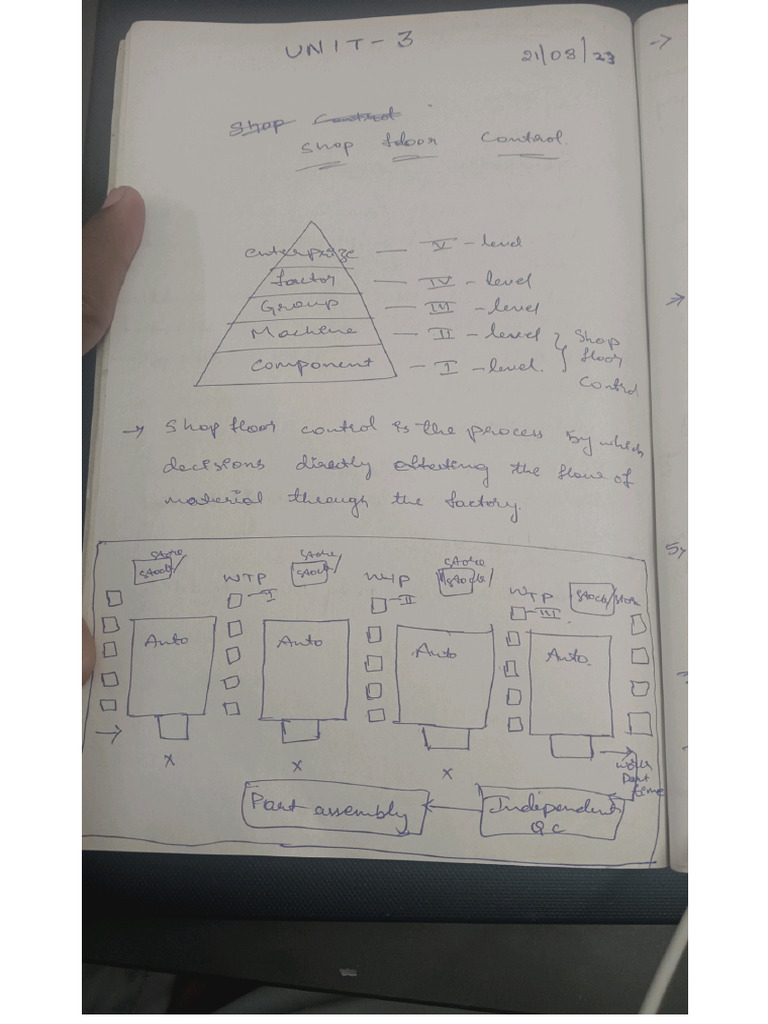 UNIT-3
21/08/23
Shop Control
Shop floor Control.
enterprize — V - level
factor — IV - level
Group — III - level
Machine — II - level
Component — I - level.
Shop
floor
Control
→ Shop floor control is the process by which
decisions directly affecting the flow of
material through the factory.
Store
Stock/
WIP
I
Store
Stock/
WIP
II
Store
Stock/
WIP
III
Stock/Store
Auto
Auto
Auto
Auto.
x
x
x
work
part
time
Part assembly
Independent
QC